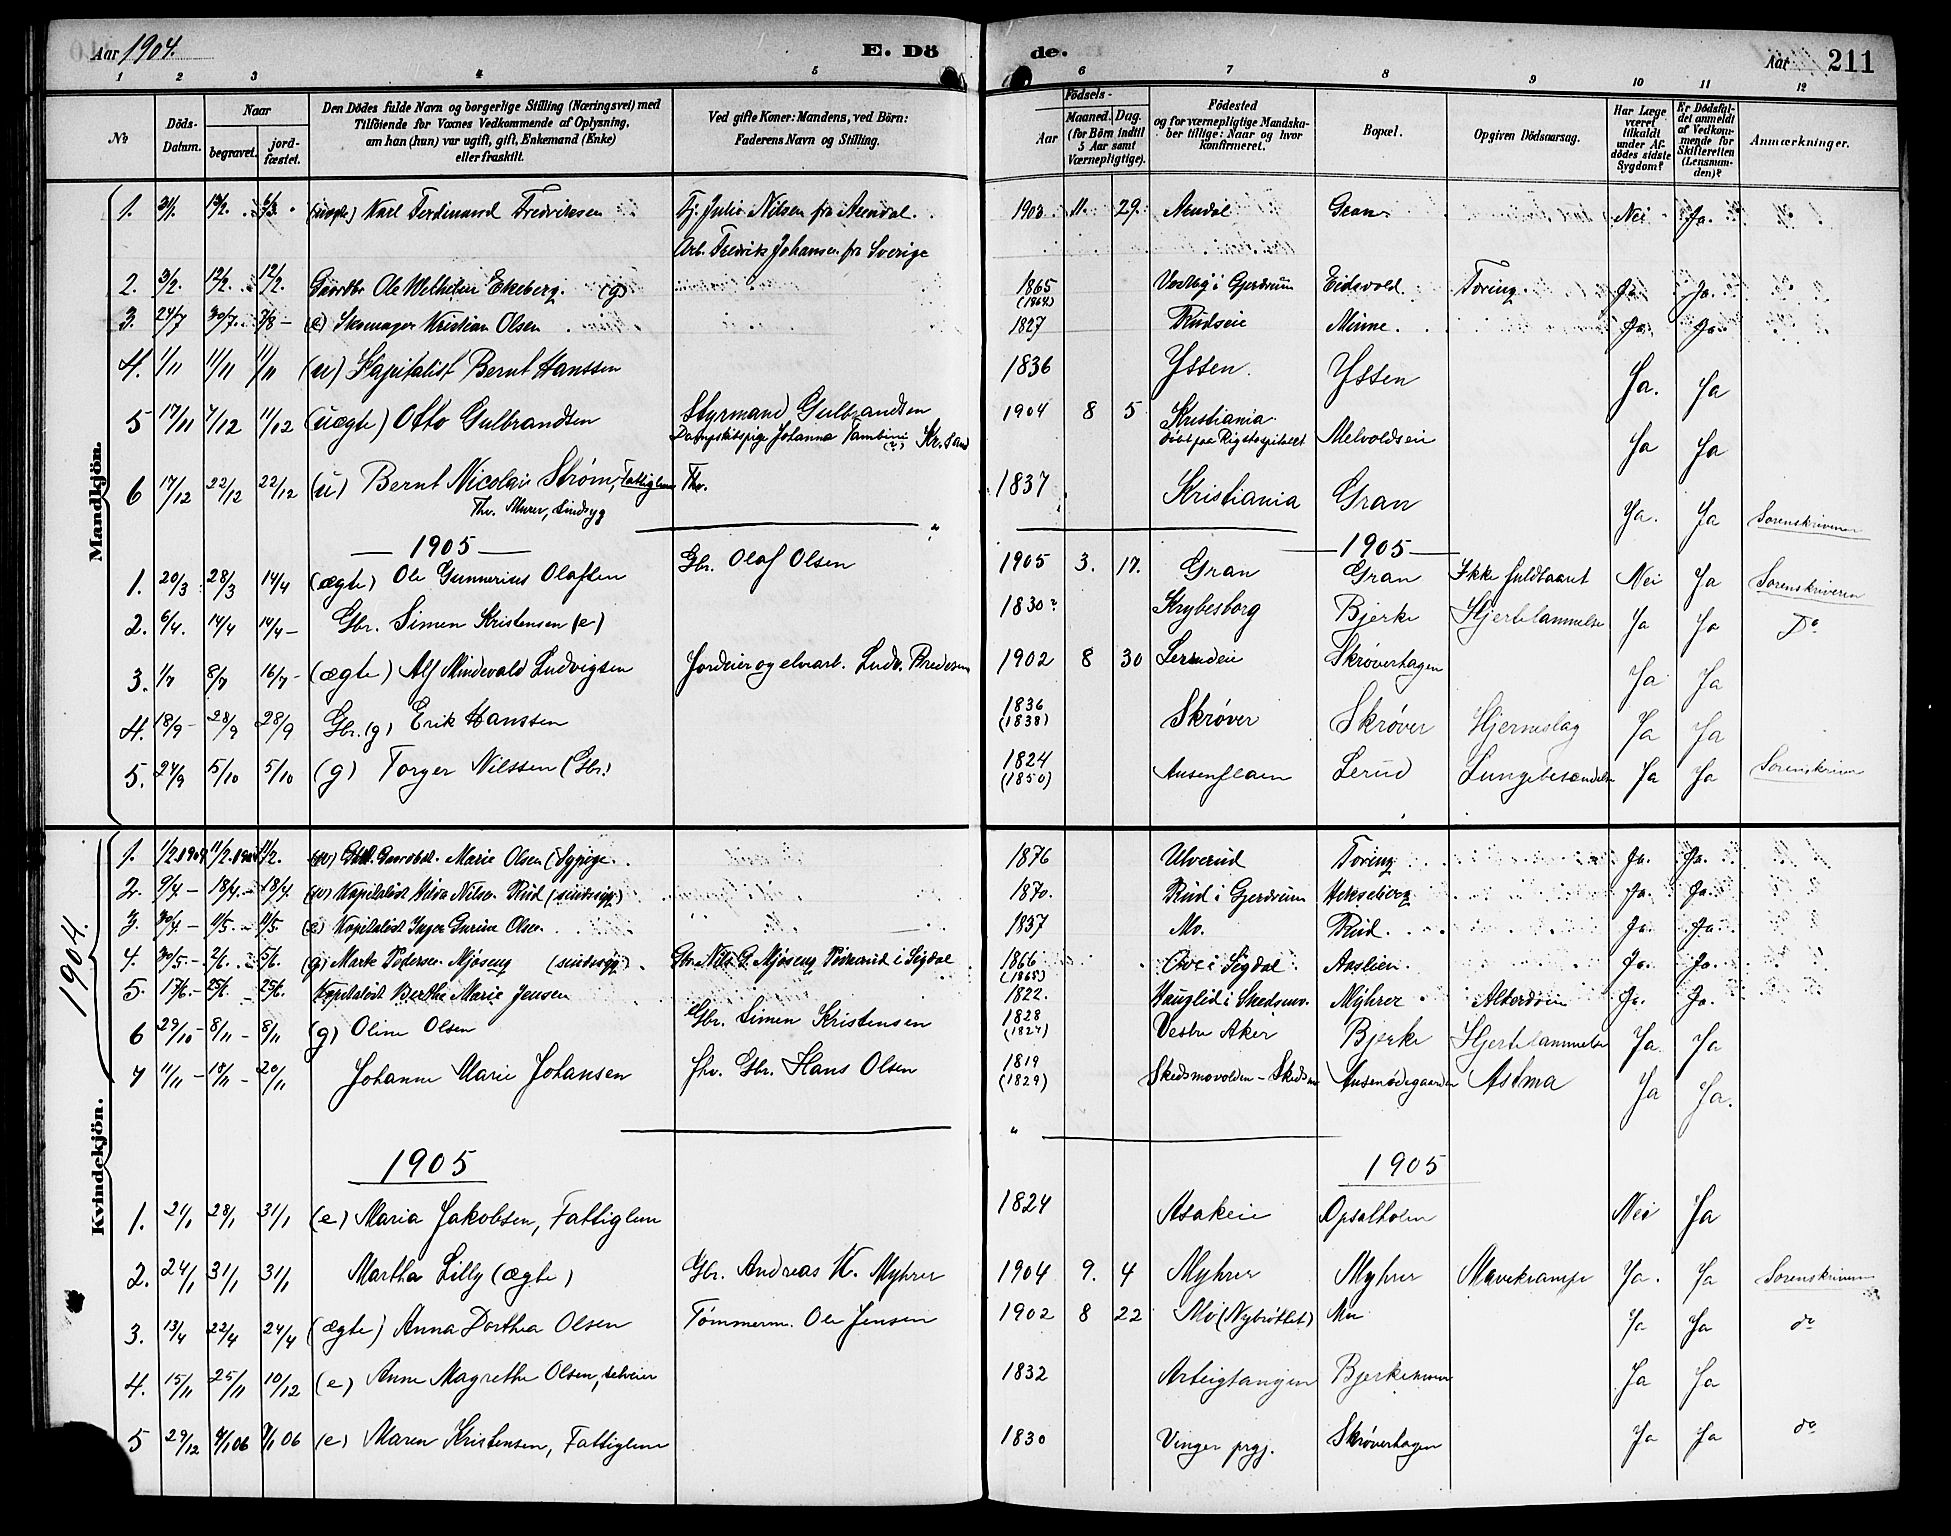 Aar 1904. E. Dö de. Aar 211
1 2 3 4 5 6 7 8 9 10 11 12
No
Döds-Datum.
Naar
begravet.
jord-fæstet.
Den Dödes fulde Navn og borgerlige Stilling (Næringsvei) med
Tilföiende for Voxnes Vedkommende af Oplysning,
om han (hun) var ugift, gift, Enkemand (Enke)
eller fraskilt.
Ved gifte Koner: Mandens, ved Börn:
Faderens Navn og Stilling.
Födsels-
Aar
Maaned. Dag.
(for Börn indtil
5 Aar samt
Værnepligtige).
Födested
og for værnepligtige Mandska-
ber tillige: Naar og hvor
konfirmeret.
Bopæl.
Opgiven Dödsaarsag.
Har Læge
været
tilkaldt
under Af-
dödes sidste
Sygdom?
Er Dödsfal-
det anmeldt
af Vedkom-
mende for
Skifteretten
(Lensman-
den)?
Anmærkninger.
Mandkjön.
1. (uægte) Karl Ferdinand Fredriksen Tj. Julie Nilsen fra Arendal. 1903 11. 29. Arendal Gran Nei Ja.
Arb. Fredrik Johansen fr Sverige
2. 3/2. 12/2. 12/2. Gaardbr Ole Wilhelm Ekeberg. (g) 1865 (1864) i Gjerdrum Eidsvold Tæring. Ja. Ja.
3. 24/7 30/7. 7/8 - (e) Skomager Kristian Olsen 1827 Rudseie Minne. Ja. Ja.
4. 1/11 11/11 11/11 (u) Kapitalist Bernt Hanssen 1836 Yssen. Yssen Ja. Ja
5 17/11 7/12 11/12 (uægte) Otto Gulbrandsen Styrmand Gulbrandsen 1904 8 5 Kristiania Melvoldseie Ja Ja
Dampskibspige Johanna Tambini (?) Kr.sand födt paa Rigshospitalet
6 17/12 22/12 22/12 (u) Bernt Nicolai Strøm, Fattiglem Fhv. 1837 Kristiania Gran Ja. Ja Sorenskriveren
Fhv. Murer, Sindsyg
1905 1905
1. 20/3 28/3 14/4 (ægte) Ole Gunnerius Olafsen Gbr. Olaf Olsen 1905 3. 17. Gran Gran Ikke fuldbaaret Nei Ja Sorenskriveren
2. 6/4. 14/4 14/4 - Gbr. Simen Kristensen (e) 1830? Krybesborg Bjerke Hjertelammelse Ja Ja Do
3. 1/7 8/7 16/7 - (ægte) Alf Mindevald Ludvigsen Jordeier og elvearb. Ludv. Bredesen 1902 8 30 Lerudeie Skrøverhagen Ja Ja
4. 18/9 - 28/9 28/9 Gbr. (g) Erik Hanssen 1836 (1838) Skrøver Skrøver Hjerneslag Ja Ja
5. 24/9 5/10 5/10 (g) Torger Nilssen (Gbr.) 1824 (1850) Lerud Lungebetændelse Ja Ja Sorenskriveren
Kvindekjön.
1904.
1. 1/2.1904 11/2.1904 11/2. Marie Olsen (Sypige. 1876 Ulverud Tæring Ja. Ja.
2. 9/4 - 18/4. - 18/4. Kapitalist Nilsn. Rud (sindssyg) 1870. Rud i Gjerdrum Hekseberg Ja. Ja.
3. 30/4 - 11/5. - 11/5. (e) Kapitalist Inger Gurine Olsen. 1837 Mo. Rud. Ja. Ja.
4. 30/5. - 2/6. 5/6. (g) Marte Pedersen Mjøseng (sindssyg) Gbr Nils G. Mjøseng i Sigdal 1866 (1865) i Sigdal Aaslien. Ja. Ja.
5. 17/6. - 25/6. 25/6. Kapitalist Berthe Marie Jensen 1822. Hauglid i Skedsmo. Myhrer Alderdom Ja. Ja.
6 29/10 - 8/11 - 8/11 (g) Oline Olsen Gbr. Simen Kristensen 1828 (1827) Vestre Aker Bjerke Hjertelammelse Ja. Ja
7 11/11 - 18/11 - 20/11 Johanne Marie Johansen fhv. Gbr. Hans Olsen 1819 (1829) Skedsmovolden - Skedsmo Ausenødegaarden Astma Ja Ja.
1905 1905
1. 21/1 28/1 31/1 (e) Maria Jakobsen, Fattiglem 1824 Asakeie Opsalholm Nei Ja
2. 24/1 31/1 31/1 Martha Lilly (ægte) Gbr. Andreas K. Myhrer 1904 9. 4 Myhrer Myhrer Mavekrampe Ja. Ja Sorenskriveren
3. 13/4 22/4 24/4 (ægte) Anna Dorthea Olsen Tømmerm. Ole Jensen 1902 8 22 Mo (Nybrøttet) Mo Ja Ja do
4. 15/11 25/11 10/12 (e) Anne Magrethe Olsen, selveier 1832 Arteigtangen Ja Ja
5 29/12 4/1 06 7/1 06 (e) Maren Kristensen, Fattiglem 1830 Vinger prgj. Skrøverhagen Ja Ja do